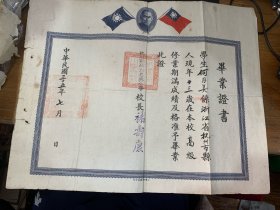 畢業證書
學生何美係浙江省杭市縣
人現年十三歲在本校高級
修業期滿成績及格准予畢業
此證
校長
中華民國五年七月日